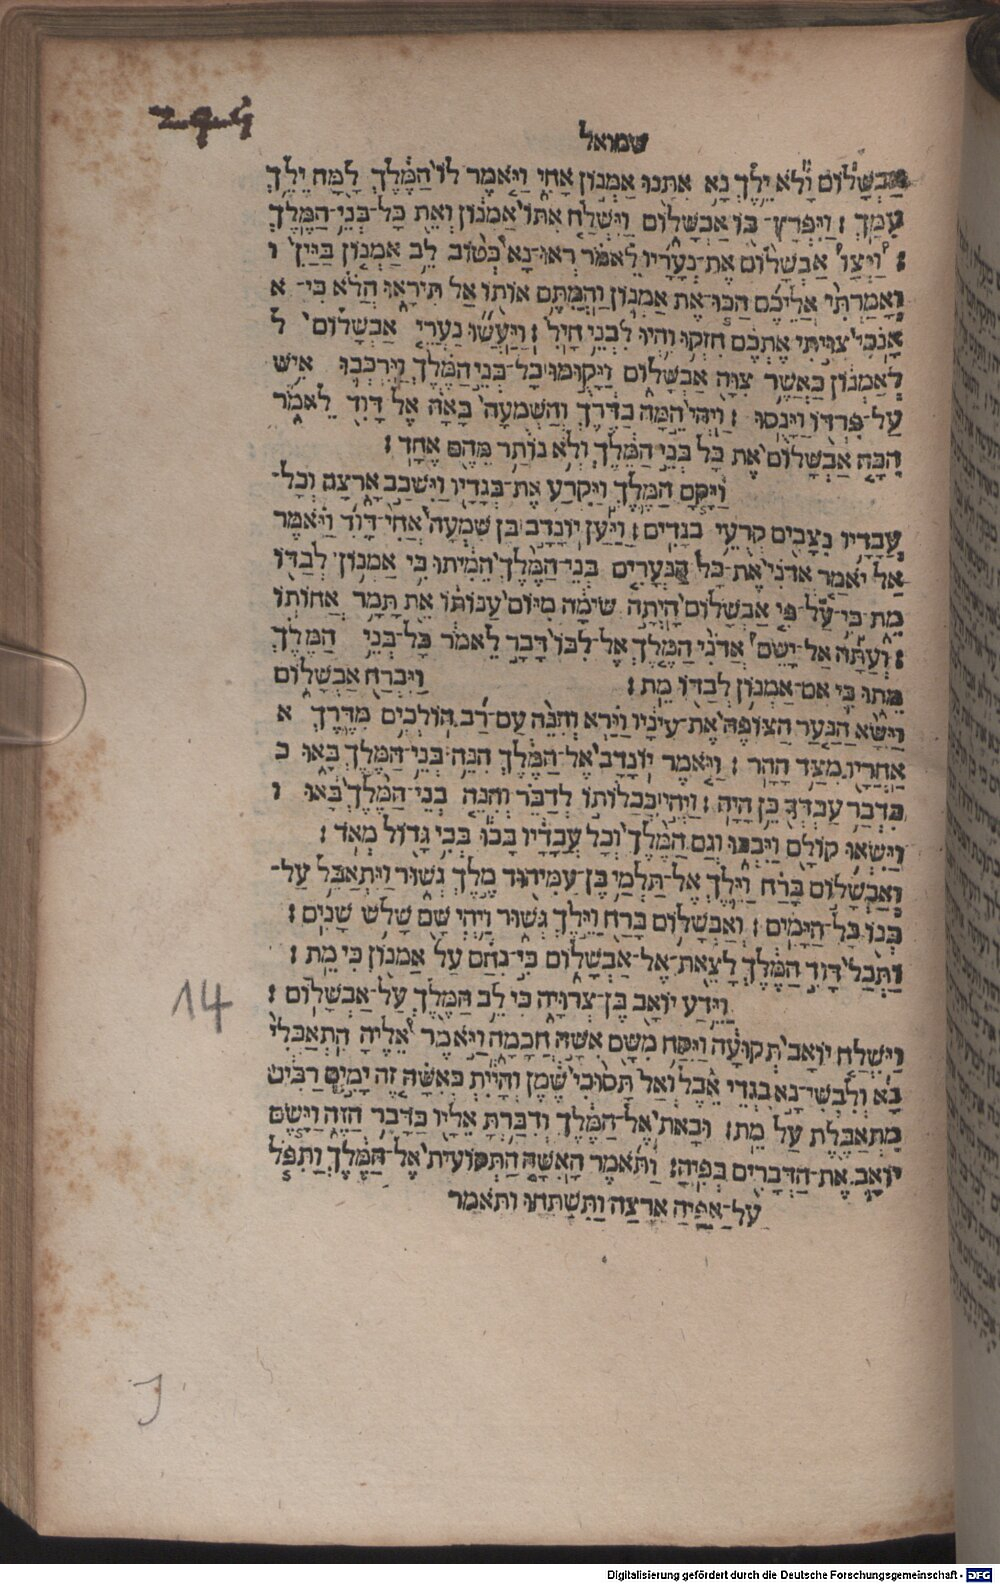 שמואל
אַבְשָׁלוֹם וָלֹא יֵלֶךְ נָא אִתָּנוּ אַמְנוֹן אָחִי וַיֹּאמֶר לוֹ הַמֶּלֶךְ לָמָּה יֵלֵךְ
עִמָּךְ׃ וַיִּפְרָץ־ בּוֹ אַבְשָׁלוֹם וַיִּשְׁלַח אִתּוֹ אַמְנוֹן וְאֵת כָּל־בְּנֵי־הַמֶּלֶךְ
׃ וַיְצַו אַבְשָׁלוֹם אֶת־נְעָרָיו לֵאמֹר רְאוּ־נָא כְּטוֹב לֵב אַמְנוֹן בַּיַּיִן ו
וְאָמַרְתִּי אֲלֵיכֶם הַכּוּ אֶת אַמְנוֹן וַהֲמִתֶּם אוֹתוֹ אַל תִּירָאוּ הֲלֹא כִּי־ א
אָנֹכִי צִוִּיתִי אֶתְכֶם חִזְקוּ וִהְיוּ לִבְנֵי חָיִל׃ וַיַּעֲשׂוּ נַעֲרֵי אַבְשָׁלוֹם ל
לְאַמְנוֹן כַּאֲשֶׁר צִוָּה אַבְשָׁלוֹם וַיָּקוּמוּ כָל־בְּנֵי הַמֶּלֶךְ וַיִּרְכְּבוּ אִישׁ
עַל־פִּרְדּוֹ וַיָּנֻסוּ׃ וַיְהִי הֵמָּה בַדֶּרֶךְ וְהַשְּׁמֻעָה בָאָה אֶל דָּוִד לֵאמֹר
הִכָּה אַבְשָׁלוֹם אֶת כָּל בְּנֵי הַמֶּלֶךְ וְלֹא נוֹתַר מֵהֶם אֶחָד׃
וַיָּקָם הַמֶּלֶךְ וַיִּקְרַע אֶת־בְּגָדָיו וַיִּשְׁכַּב אָרְצָה וְכָל־
עֲבָדָיו נִצָּבִים קְרֻעֵי בְגָדִים׃ וַיַּעַן יוֹנָדָב בֶּן שִׁמְעָה אֲחִי־דָוִד וַיֹּאמֶר
אַל יֹאמַר אֲדֹנִי אֵת־כָּל הַנְּעָרִים בְּנֵי־הַמֶּלֶךְ הֵמִיתוּ כִּי אַמְנוֹן לְבַדּוֹ
מֵת־כִּי־עַל־פִּי אַבְשָׁלוֹם הָיְתָה שׂימָה מִיּוֹם עַנּוֹתוֹ אֵת תָּמָר אֲחוֹתוֹ
׃ וְעַתָּה אַל־יָשֵׂם אֲדֹנִי הַמֶּלֶךְ אֶל־לִבּוֹ דָּבָר לֵאמֹר כָּל־בְּנֵי הַמֶּלֶךְ
מֵתוּ כִּי אִם־אַמְנוֹן לְבַדּוֹ מֵת׃ וַיִּבְרַח אַבְשָׁלוֹם
וַיִּשָּׂא הַנַּעַר הַצּוֹפֶה אֶת־עֵינָיו וַיַּרְא וְהִנֵּה עַם־רַב הוֹלְכִים מִדֶּרֶךְ א
אַחֲרָיו מִצַּד הָהָר׃ וַיֹּאמֶר יוֹנָדָב אֶל־הַמֶּלֶךְ הִנֵּה־בְּנֵי־הַמֶּלֶךְ בָּאוּ כ
כִּדְבַר עַבְדְּךָ כֵּן הָיָה׃ וַיְהִי כְּכַלּוֹתוֹ לְדַבֵּר וְהִנֵּה בְנֵי־הַמֶּלֶךְ בָּאוּ ו
וַיִּשְׂאוּ קוֹלָם וַיִּבְכּוּ וְגַם הַמֶּלֶךְ וְכָל עֲבָדָיו בָּכוּ בְּכִי גָּדוֹל מְאֹד׃
וְאַבְשָׁלוֹם בָּרַח וַיֵּלֶךְ אֶל־תַּלְמַי בֶּן־עַמִּיהוּד מֶלֶךְ גְּשׁוּר וַיִּתְאַבֵּל עַל־
בְּנוֹ כָּל־הַיָּמִים׃ וְאַבְשָׁלוֹם בָּרַח וַיֵּלֶךְ גְּשׁוּר וַיְהִי שָׁם שָׁלֹשׁ שָׁנִים׃
וַתְּכַל דָּוִד הַמֶּלֶךְ לָצֵאת־אֶל־אַבְשָׁלוֹם כִּי־נִחַם עַל אַמְנוֹן כִּי מֵת׃
14
וַיֵּדַע יוֹאָב בֶּן־צְרוּיָה כִּי לֵב הַמֶּלֶךְ עַל־אַבְשָׁלוֹם׃
וַיִּשְׁלַח יוֹאָב תְּקוֹעָה וַיִּקַּח מִשָּׁם אִשָּׁה חֲכָמָה וַיֹּאמֶר אֵלֶיהָ הִתְאַבְּלִי
נָא וְלִבְשִׁי־נָא בִגְדֵי אֵבֶל וְאַל תָּסוּכִי שֶׁמֶן וְהָיִית כְּאִשָּׁה זֶה יָמִים רַבִּים
מִתְאַבֶּלֶת עַל מֵת׃ וּבָאת אֶל־הַמֶּלֶךְ וְדִבַּרְתְּ אֵלָיו כַּדָּבָר הַזֶּה וַיָּשֶׂם
יוֹאָב אֶת־הַדְּבָרִים בְּפִיהָ׃ וַתֹּאמֶר הָאִשָּׁה הַתְּקוֹעִית אֶל־הַמֶּלֶךְ וַתִּפֹּל
עַל־אַפֶּיהָ אַרְצָה וַתִּשְׁתָּחוּ וַתֹּאמֶר
Digitalisierung gefördert durch die Deutsche Forschungsgemeinschaft - DFG